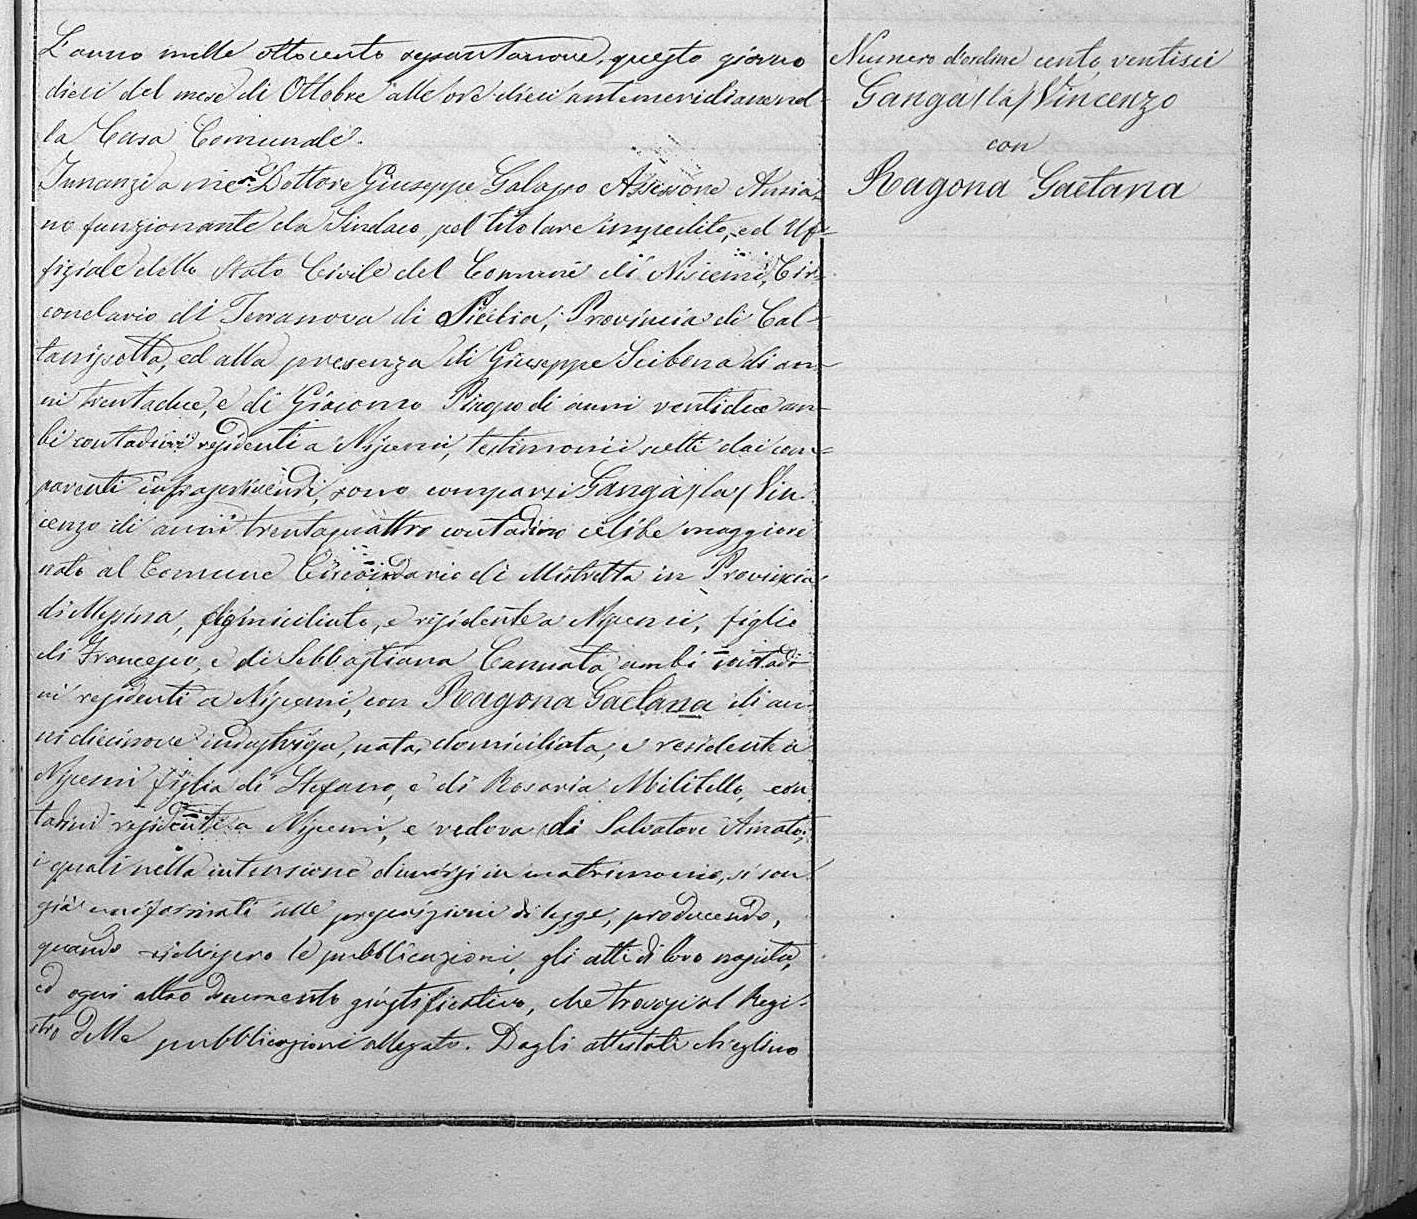 L'anno mille ottocento sessantanove, questo giorno
dieci del mese di Ottobre alle ore dieci antemeridiane nel-
la Casa Comunale.
Innanzi a me Dottore Giuseppe Assessore Anzia-
no funzionante da Sindaco, pel titolare impedito, ed Uf-
fiziale dello Stato Civile del Comune di Niscemi, Cir-
condario di Terranova di Sicilia, Provincia di Cal-
tanissetta, ed alla presenza di Giuseppe Scibona di an-
ni trentadue, e di Giacomo di anni ventidue am-
bi contadini residenti a Niscemi, testimonii scelti dai com-
parenti infrascrivendi, sono comparsi Ganga /la/ Vin
cenzo di anni trentaquattro contadino celibe maggiore
nato al Comune Circondario di Mistretta in Provincia
di Messina, domiciliato, e residente a Niscemi, figlio
di Francesco, e di Sebbastiana Cannata ambi contadi
ni residenti a Niscemi, con Ragona Gaetana di an-
ni diecinove industriosa, nata, domiciliata, e residente a
Niscemi figlia di Stefano, e di Rosaria Militello, con
tadini residenti a Niscemi, e vedova di Salvatore Amato;
i quali nella intensione di unirsi in matrimonio, si son
già uniformati alle prescrizioni di legge, producendo,
quando richiesero le pubblicazioni, gli atti di loro nascita,
ed ogni altro documento giustificativo, che trovasi al Regi-
stro delle pubblicazioni allegato. Dagli attestati
Numero d'ordine cento ventisei
Ganga /la/ Vincenzo
con
Ragona Gaetana